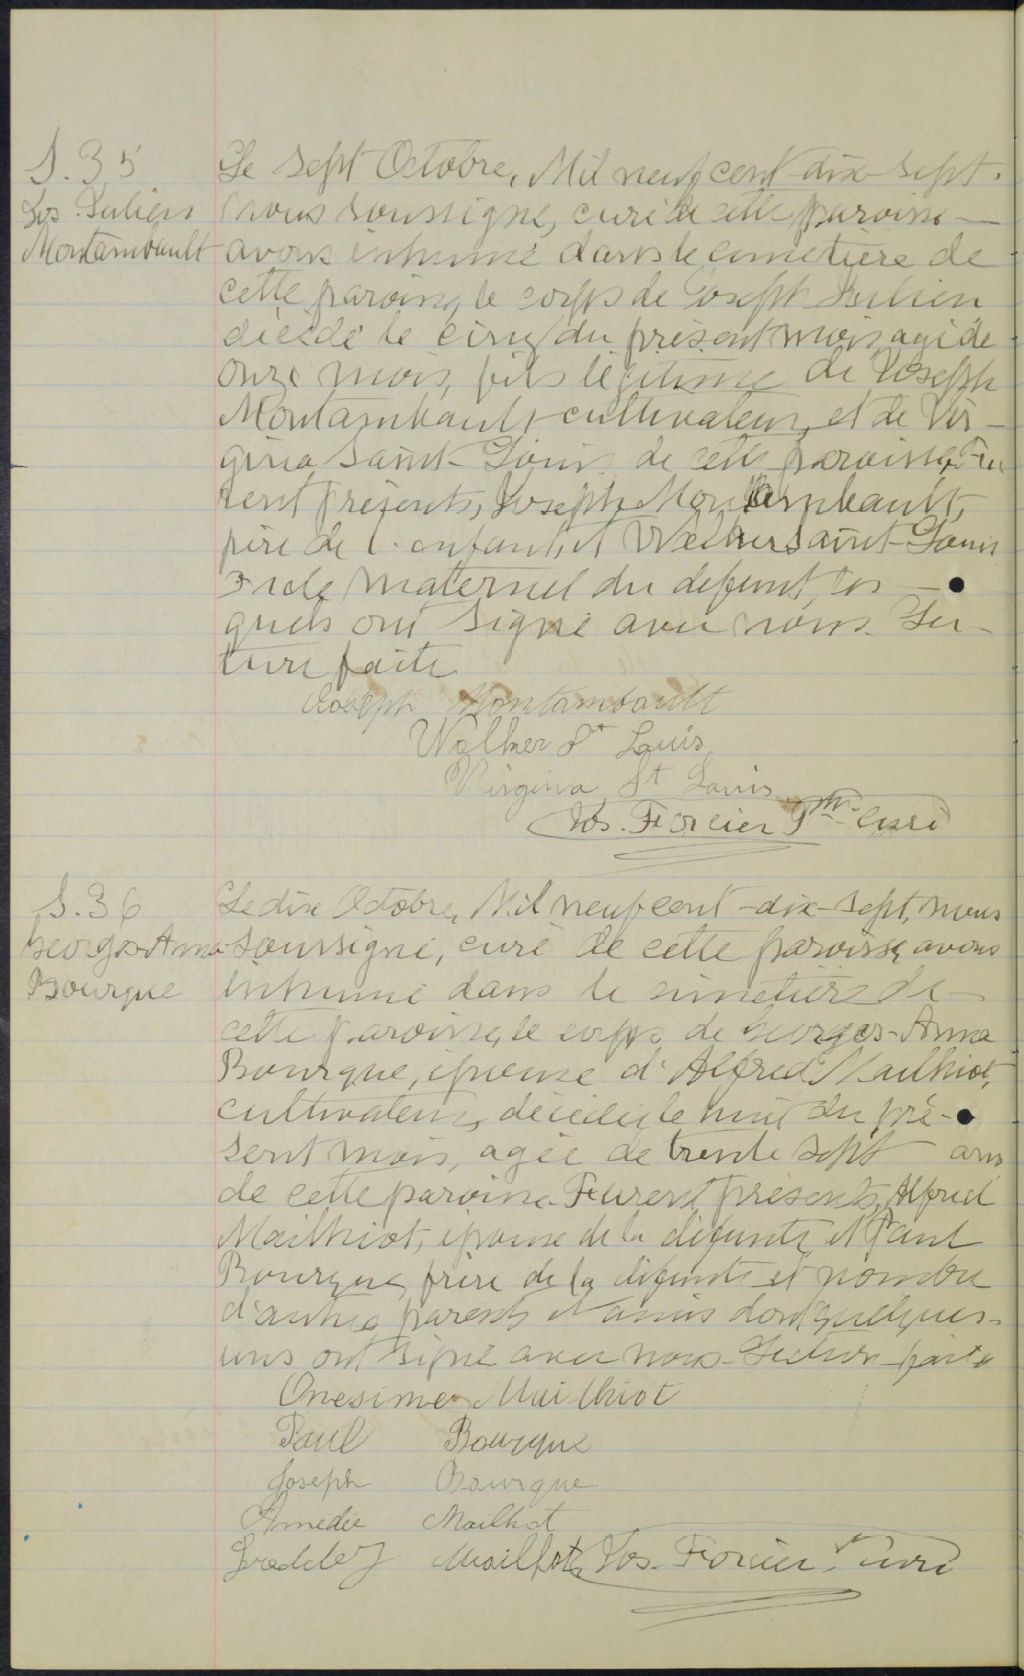 S. 35
Jos. Julien
Montambault
Le sept Octobre, Mil neuf cent-dix-sept.
nous soussigné, curé de cette paroisse
avons inhumé dans le cimetière de
cette paroisse, le corps de Joseph Julien
décédé le cinq du présent mois, agé de
onze mois, fils légitime de Joseph
Montambault cultivateur, et de Vir-
ginia Saint-Louis de cette paroisse. Fu
rent présents, Joseph Montambault,
père de l'enfant, et Walher Saint-Louis
oncle maternel du defunt, les
quels ont signé avec nous. Lec-
ture faite
Joseph Montambault
Walher St Louis
Virginia St Louis
Jos. Forcier Ptre Curé
S. 36
Georges-Anna
Bourque
Le dix Octobre, Mil neuf cent-dix-sept, nous
soussigné, curé de cette paroisse, avons
inhumé dans le cimetière de
cette paroisse, le corps de Georges-Anna
Bourque, épouse d'Alfred Mailhiot,
cultivateur, décédée le huit du pré-
sent mois, agée de trente sept ans
de cette paroisse. Furent présents, Alfred
Mailhiot, épouse de la défunte, et Paul
Bourque, frère de la défunte et nombre
d'autres parents et amis dont quelques-
uns ont signé avec nous. Lecture faite
Onesime Mailhiot
Paul Bourque
Joseph Bourque
Amedée Mailhot
Mailhot
Jos. Forcier Ptre curé